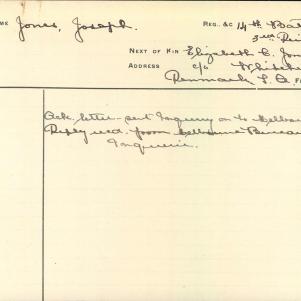 ME Jones, Joseph. REG. &C 14th Bat
3rd Rei
NEXT OF KIN Elizabeth C. Jon
ADDRESS c/o White
Renmark S. A. F
Ack. letter - sent Inquiry on to Melbou
Reply recd. from Melbourne Bureau
Inquiries.